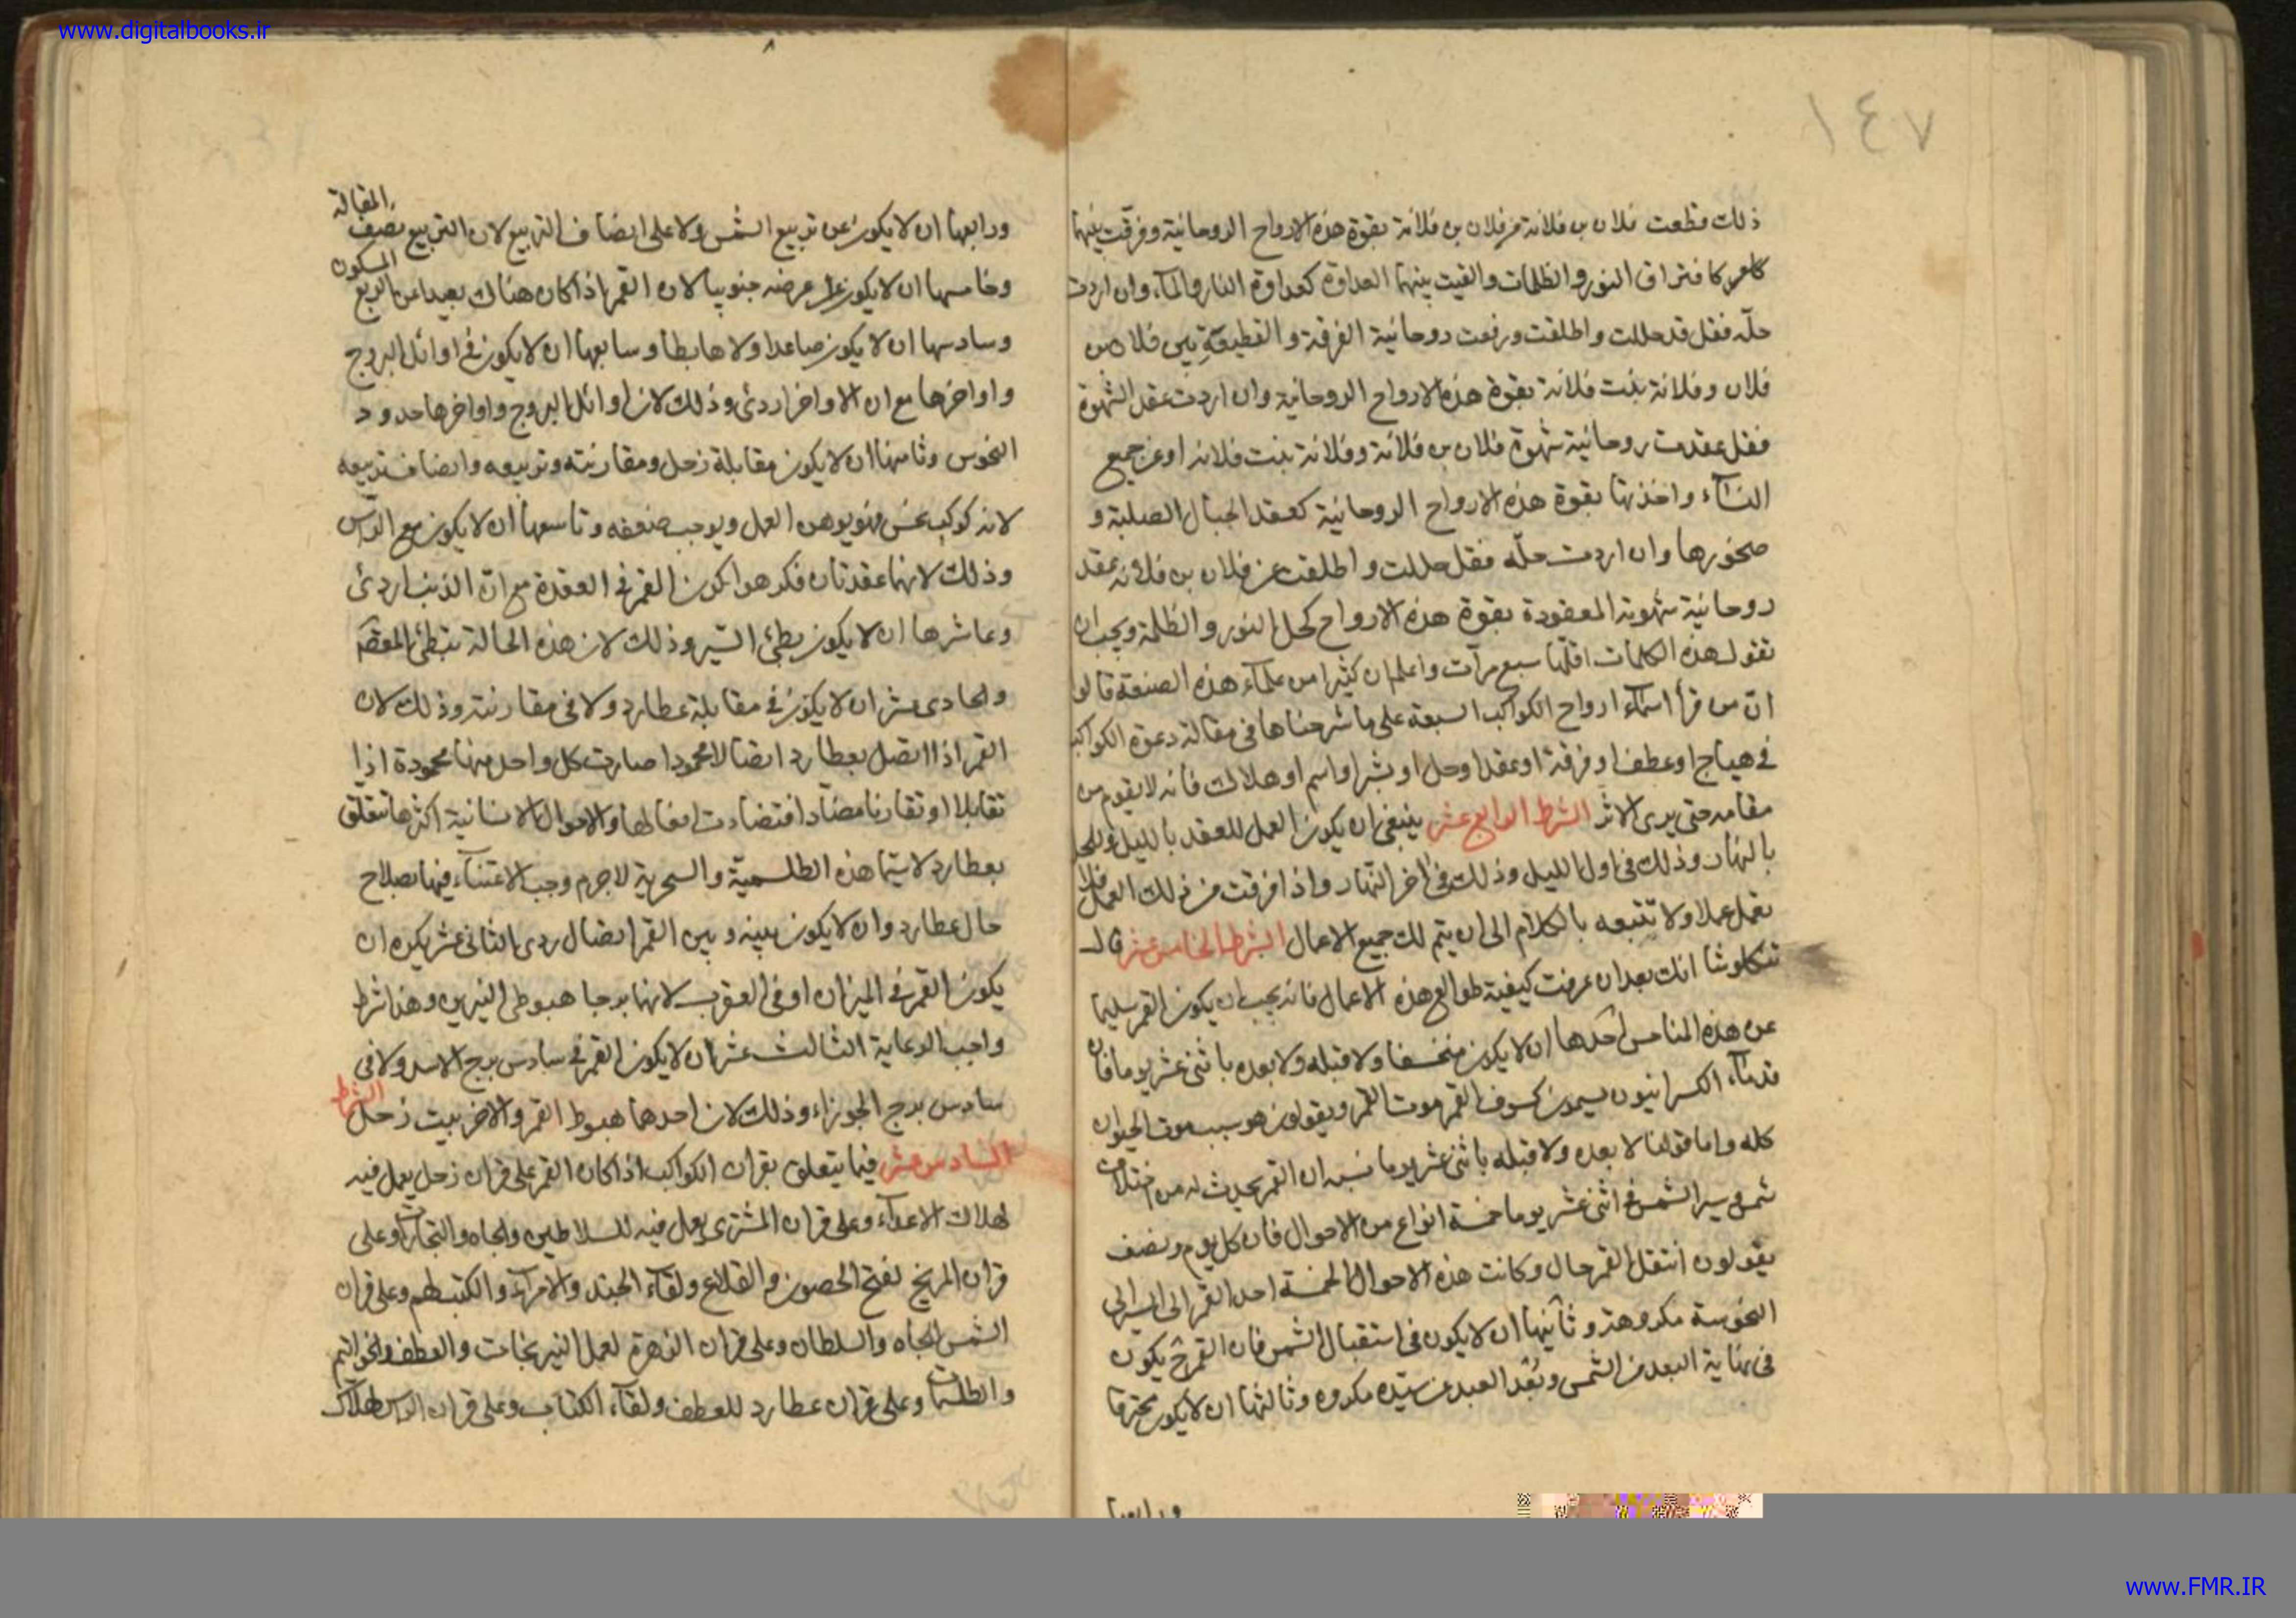 www.digitalbooks.ir
١٤٧
ذلك قطعت فلان بن فلانة من فلان بن فلانة بقوة هذه الارواح الروحانية وفرقت بينهما
كافتراق النور والظلمات والقيت بينهما العداوة كعداوة النار والمآء وان اردت
حلّه فقل قد حللت واطلقت ورفعت روحانية الفرقة والقطيعة بين فلان بن
فلان وفلانة بنت فلانة بقوة هذه الارواح الروحانية وان اردت عقد الشهوة
فقل عقدت روحانية شهوة فلان بن فلانة وفلانة بنت فلانه او عن جميع
النسآء واخذتها بقوة هذه الارواح الروحانية كعقد الجبال الصلبة و
صخورها وان اردت حلّه فقل حللت واطلقت عن فلان بن فلانه عقد
روحانية شهوته المعقودة بقوة هذه الارواح كحل النور والظلمة ويجب ان
تقول هذه الكلمات اقلّها سبع مرآت واعلم ان كثيرا من علمآء هذه الصنعة قالوا
انّ من قرأ اسمآء ارواح الكواكب السبعة على ما شرحناها فى مقالة دعوة الكواكب
فى هياج او عطف او فرقة او عقد او حل او اسم او هلاك فانه لا يقوم من
مقامه حتى يرى الاثر الشرط الرابع عشر ينبغى ان يكون العمل للعقد بالليل وللحل
بالنهار وذلك فى اول الليل وذلك فى اخر النهار واذا فرغت من ذلك العمل فلا
تعمل عملا ولا تتبعه بالكلام الى ان يتم لك جميع الاعمال الشرط الخامس عشر قال
تنكلوشا انك بعد ان عرفت كيفية طوالع هذه الاعمال فانه يجب ان يكون القمر سليما
عن هذه المناحس احدها ان لا يكون منخسفا ولا قبله ولا بعده باثنى عشر يوما فان
قدمآء الكسرانيون يسمون كسوف القمر موت القمر ويقولون هو سبب موت الحيوان
كله واما قولنا لا بعده ولا قبله باثنى عشر يوما فان القمر يحدث له من اختلاف
سير الشمس فى اثنى عشر يوما خمسة انواع من الاحوال فان كل يوم ونصف
يقولون انتقل القمر حال وكانت هذه الاحوال الخمسة
النحوسة مكروهة وثانيها ان لا يكون فى استقبال الشمس فان القمر ح يكون
فى نهاية البعد من الشمس وبُعد العبد عن سيّده مكروه وثالثها ان لا يكون محترقا
ورابعها
ورابعها ان لا يكون عن تربيع الشمس ولا على انصاف التربيع لان التربيع نصف المقابلة
وخامسها ان لا يكون عرضه جنوبيا لان القمر اذا كان هناك بعيدا عن الربع المسكون
وسادسها ان لا يكون صاعدا ولا هابطا وسابعها ان لا يكون فى اوائل البروج
واواخرها مع ان الاواخر اردئ وذلك لان اوائل البروج واواخرها حدود
النحوس وثامنها ان لا يكون مقابلة زحل ومقارنته وتربيعه وانصاف تربيعه
لانه كوكب نحس فهو يوهن العمل ويوجب ضعفه وتاسعها ان لا يكون مع الراس
وذلك لانهما عقدتان فكرهوا كون القمر فى العقدة مع انّ الذنب اردئ
وعاشرها ان لا يكون بطئ السّير وذلك لان هذه الحالة تبطئ المقصد
والحادى عشر ان لا يكون فى مقابلة عطارد ولا فى مقارنته وذلك لان
القمر اذا اتصل بعطارد اتصالا محمودا صارت كل واحد منهما محمودة اذا
تقابلا او تقارنا افعالها والاحوال الانسانية اكثرها تتعلق
بعطارد لاسيّما هذه الطلسميّة والسحرية لاجرم وجب الاعتنآء فيها بصلاح
حال عطارد وان لا يكون بينه وبين القمر اتصال ردى الثانى عشر يكره ان
يكون القمر فى الميزان او فى العقرب لانهما برجا هبوطى النيرين وهذا شرط
واجب الرعاية الثالث عشر ان لا يكون القمر فى سادس برج الاسد ولا فى
سادس برج الجوزاء وذلك لان احدهما هبوط القمر والاخر بيت زحل الشرط
السادس عشر فيما يتعلق بقران الكواكب اذا كان القمر على قران زحل يعمل فيه
لهلاك الاعدآء وعلى قران المشترى يعمل فيه للسلاطين والجاه والتجارات وعلى
قران المريخ لفتح الحصون والقلاع ولقآء الجند والامرآء وعلى قران
الشمس الجاه والسلطان وعلى قران الزهرة لعمل النيرنجات والعطف والخواتيم
والطلسمات وعلى قران عطارد للعطف ولقآء الكتاب وعلى قران الراس لهلاك
www.FMR.IR